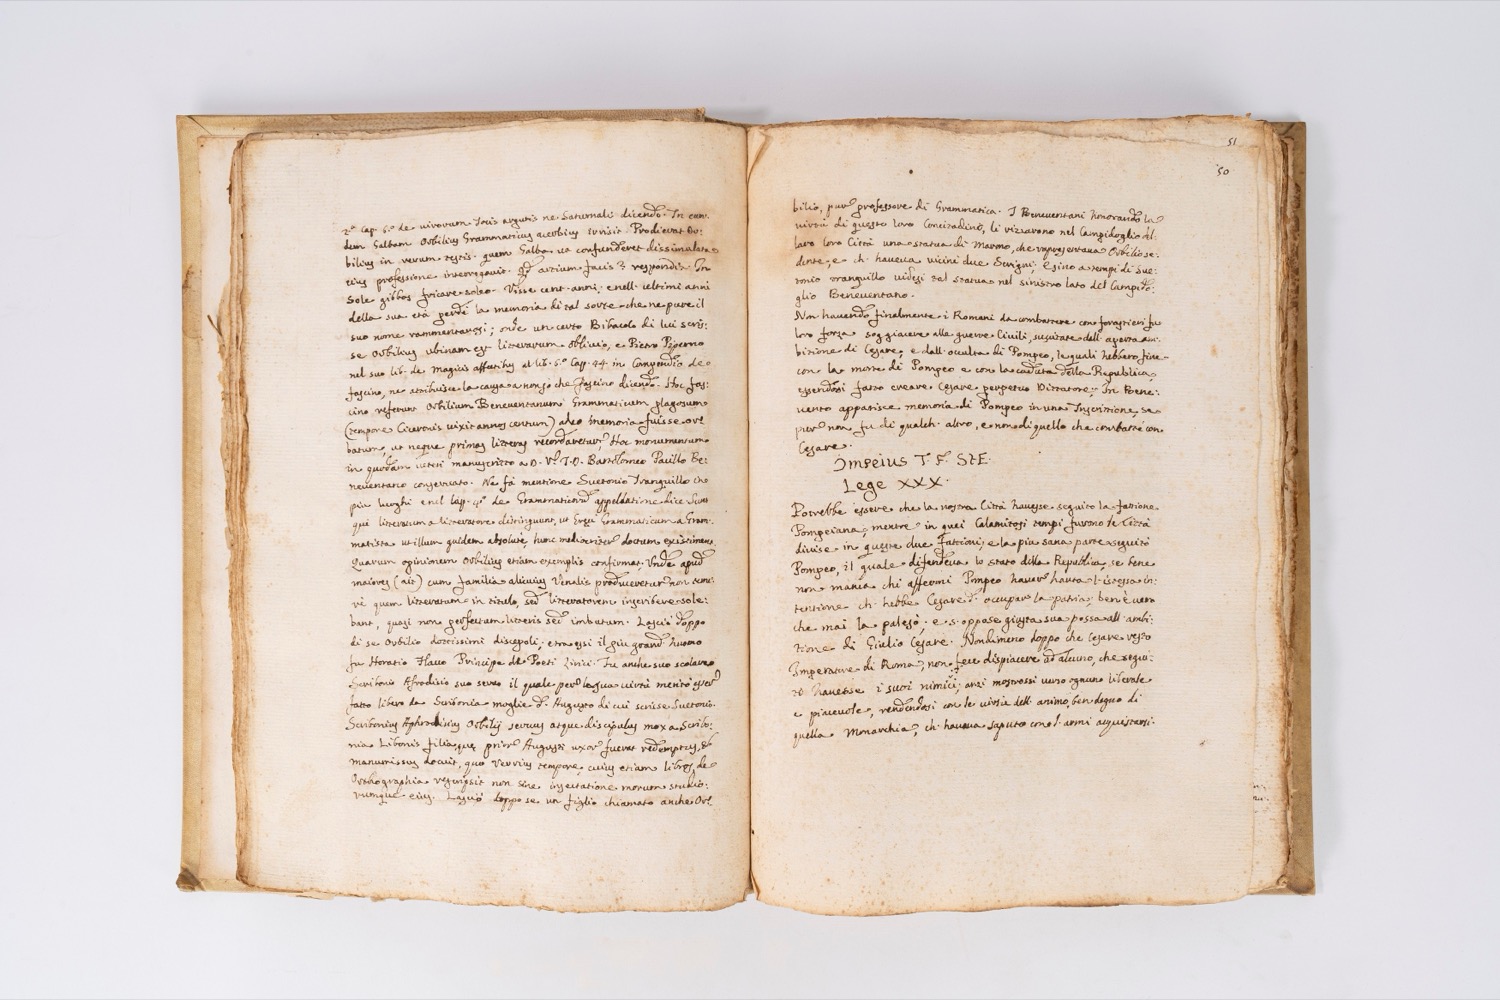 2.º Cap. 6.º de vivorum Jocis argutis ne Saturnali dicendo. In eun-
dem Galbam Orbilius Grammaticus acerbius irrisit. Prodierat Or-
bilius in rerum testis. quem Galba ut confunderet dissimulata
eius professione interrogavit. Qd artium facis? respondit. In
Sole gibbos fricare soleo. Visse cent'anni, e nell'ultimi anni
della sua età perdè la memoria di tal sorte che ne pure il
suo nome rammentavasi; onde un certo Bibacolo di lui scris-
se Orbilius ubinam est litterarum oblivio, e Pietro Piperno
nel suo lib. de Magicis affectibus al lib. 5.º Cap. 44. in Compendio de
fascino, ne attribuisce la causa a non so che fascino dicendo. Hoc fas-
cino referunt Orbilium Beneventanum Grammaticum plagosum
(tempore Ciceronis vixit annos centum) adeo memoria fuisse orl
batum, ut neque primas litteras recordaretur. Hoc monumentum
in quodam manuscritto a D. V. J. D. Bartolomeo Pacillo Be-
neventano conservato. Ne fà mentione Suetonio Tranquillo in
più luoghi e nel Cap. 4.º de Grammaticorum appellatione dice Sunt
qui litteratum a litteratore distinguunt, ut Greci Grammaticum a Gram-
matista, ut illum quidem absolute, hunc mediocriter doctum existiment.
Quorum opinionem Orbilius etiam exemplis confirmat. Unde apud
maiores (ait) cum familia alicuius Venalis produceretur non teme-
rè quem litteratum in titulo, sed litteratorem inscribere sole-
bant, quasi non perfectum litteris sed imbutum. Lasciò doppo
di se Orbilio dottissimi discepoli; etra essi il più grand'huomo
fu Horatio Flacco Principe de Poeti Lirici. Fu anche suo scolare
Scribonio Afrodisio suo servo il quale per la sua virtù meritò esser
fatto libero da Scribonia moglie d'Augusto di cui scrisse Suetonio.
Scribonius Aphrodisius Orbilij servus atque discipulus mox a Scribo-
nia Libonis filia, que prior Augusti uxor fuerat redemptus, &
manumissus docuit, quo Verrius tempore, cuius etiam libros de
Orthographia rescripsit non sine insectatione morum studio-
rumque eius. Lasciò doppo se un figlio chiamato anche Orl
51
50
bilio, pur professore di Grammatica. I Beneventani honorando la
virtù di questo loro Concittadino, li rizzarono nel Campidoglio del-
la loro Città una statua di Marmo, che rapresentava Orbilio se-
dente, e ch'haveva vicini due Scrigni; e sino a tempi di Sue-
tonio tranquillo videsi tal statua nel sinistro lato del Campido-
glio Beneventano.
Non havendo finalmente i Romani da combattere con forastieri fu
loro forza soggiacere alle guerre Civili, suscitate dall'aperta am-
bizione di Cesare, e dall'occulta di Pompeo, le quali hebbero fine
con la morte di Pompeo e con la caduta della Republica,
essendosi fatto creare Cesare perpetuo Dittatore; In Bene-
vento apparisce memoria di Pompeo in una Inscrizione, se
pur non fu di qualch'altro, e non di quello che combattè con
Cesare.
Jmpeius T. F. STE.
Lege XXX.
Potrebbe essere che la nostra Città havesse seguito la fattione
Pompeiana, mentre in quei Calamitosi tempi furono le Città
divise in queste due fattioni; e la più sana parte seguitò
Pompeo, il quale difendeva lo stato della Republica, se bene
non manca chi affermi Pompeo haver havuta l'istessa in-
tentione ch'hebbe Cesare d'occupar la patria; ben è vero
che mai la palesò. e s'oppose giusta sua possa all'ambi-
tione di Giulio Cesare. Nondimeno doppo che Cesare restò
Imperatore di Roma, non fece dispiacere ad alcuno, che segui-
to havesse i suoi nimici; anzi mostrossi verso ognuno liberale
e piacevole, rendendosi con le virtù dell'animo ben degno di
quella Monarchia, ch'haveva saputo con l'armi acquistarsi.